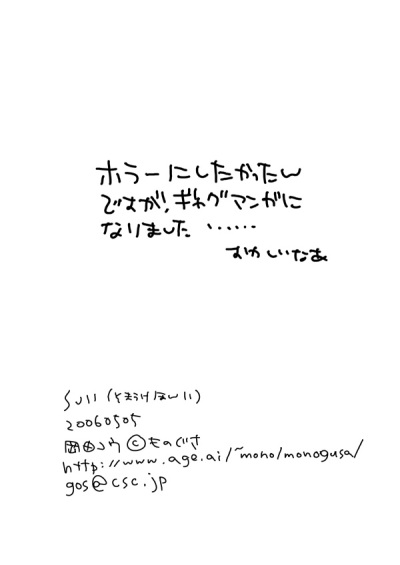 ホラーにしたかったん
ですが、ギャグマンガに
なりました ……
おかしいなあ
20060505
岡田コウ ©ものぐさ
http://www.age.ai/~mono/monogusa/
gos@csc.jp